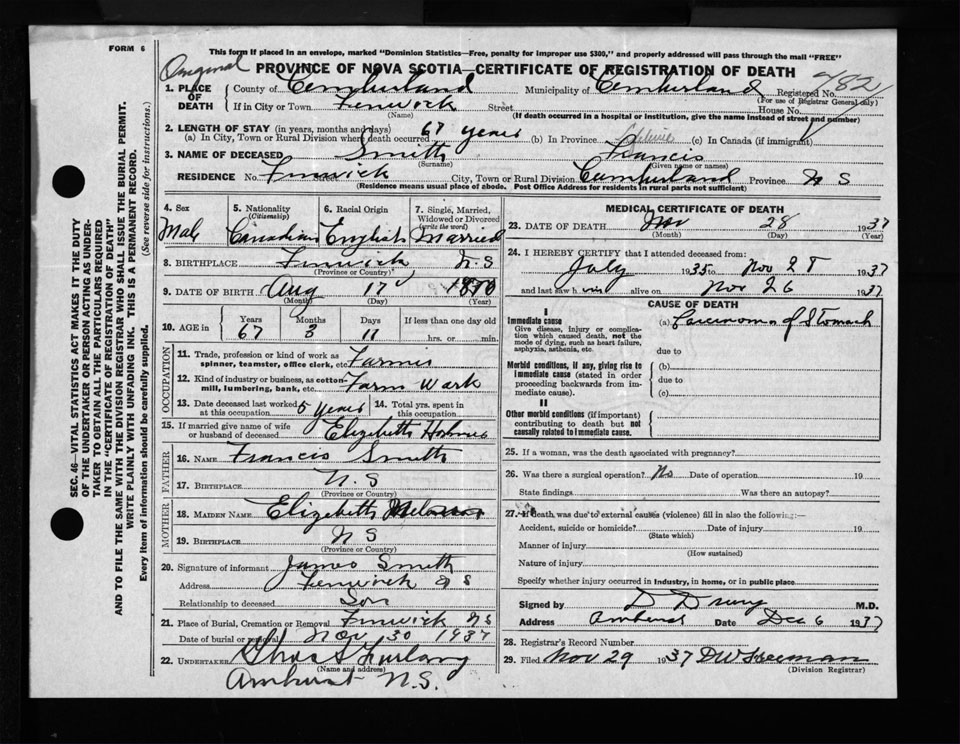 FORM 6
This form if placed in an envelope, marked "Dominion Statistics—Free, penalty for improper use $300," and properly addressed will pass through the mail "FREE"
Original PROVINCE OF NOVA SCOTIA—CERTIFICATE OF REGISTRATION OF DEATH
1. PLACE OF DEATH County of Cumberland Municipality of Cumberland Registered No. 782
(For use of Registrar General only)
If in City or Town Fenwick Street House No.
(Name) (If death occurred in a hospital or institution, give name instead of street and number)
2. LENGTH OF STAY (in years, months and days)
(a) In City, Town or Rural Division where death occurred 67 years (b) In Province (c) In Canada (if immigrant)
3. NAME OF DECEASED Smith Francis
(Surname) (Given name or names)
RESIDENCE No. Fenwick Street City, Town or Rural Division Cumberland Province N S
(Residence means usual place of abode. Post Office Address for residents in rural parts not sufficient)
4. Sex Male
5. Nationality (Citizenship) Canadian
6. Racial Origin English
7. Single, Married, Widowed or Divorced (write the word) Married
8. BIRTHPLACE Fenwick N. S
(Province or Country)
9. DATE OF BIRTH Aug 17 1870
(Month) (Day) (Year)
10. AGE in Years Months Days If less than one day old
67 3 11 hrs. or min.
OCCUPATION
11. Trade, profession or kind of work as spinner, teamster, office clerk, etc. Farmer
12. Kind of industry or business, as cotton mill, lumbering, bank, etc. Farm Work
13. Date deceased last worked at this occupation 5 years 14. Total yrs. spent in this occupation
15. If married give name of wife or husband of deceased Elizabeth Holmes
FATHER
16. NAME Francis Smith
17. BIRTHPLACE N. S
(Province or Country)
MOTHER
18. MAIDEN NAME Elizabeth
19. BIRTHPLACE N S
(Province or Country)
20. Signature of informant James Smith
Address Fenwick N S
Relationship to deceased Son
21. Place of Burial, Cremation or Removal Fenwick N S
Date of burial or removal Nov 30 1937
22. UNDERTAKER Furlong
(Name and address)
Amherst N. S.
MEDICAL CERTIFICATE OF DEATH
23. DATE OF DEATH Nov 28 1937
(Month) (Day) (Year)
24. I HEREBY CERTIFY that I attended deceased from:
July 1935 to Nov 28 1937
and last saw him alive on Nov 26 1937
CAUSE OF DEATH
I
Immediate cause
Give disease, injury or complication which caused death, not the mode of dying, such as heart failure, asphyxia, asthenia, etc.
(a) Carcinoma of Stomach
due to
Morbid conditions, if any, giving rise to immediate cause (stated in order proceeding backwards from immediate cause).
(b)
due to
(c)
II
Other morbid conditions (if important) contributing to death but not causally related to immediate cause.
25. If a woman, was the death associated with pregnancy?
26. Was there a surgical operation? No Date of operation 19
State findings Was there an autopsy?
27. If death was due to external causes (violence) fill in also the following:—
Accident, suicide or homicide? Date of injury 19
(State which)
Manner of injury
(How sustained)
Nature of injury
Specify whether injury occurred in industry, in home, or in public place
Signed by D M.D.
Address Amherst Date Dec 6 1937
28. Registrar's Record Number
29. Filed Nov 29 1937 D W Freeman
(Division Registrar)
SEC. 46—VITAL STATISTICS ACT MAKES IT THE DUTY
OF THE UNDERTAKER OR PERSON ACTING AS UNDER-
TAKER TO OBTAIN ALL THE PARTICULARS REQUIRED
IN THE "CERTIFICATE OF REGISTRATION OF DEATH"
AND TO FILE THE SAME WITH THE DIVISION REGISTRAR WHO SHALL ISSUE THE BURIAL PERMIT.
WRITE PLAINLY WITH UNFADING INK. THIS IS A PERMANENT RECORD.
Every item of information should be carefully supplied. (See reverse side for instructions.)